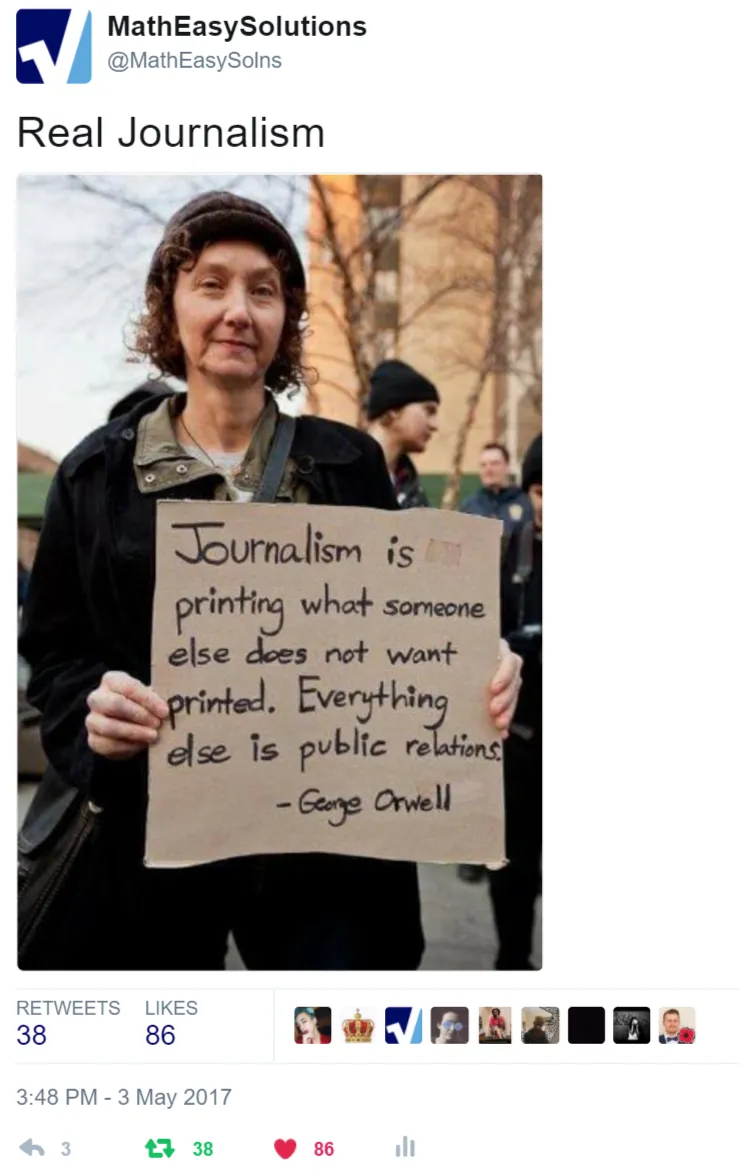 MathEasySolutions
@MathEasySolns
Real Journalism
Journalism is
printing what someone
else does not want
printed. Everything
else is public relations.
- George Orwell
RETWEETS LIKES
38 86
3:48 PM - 3 May 2017
3 38 86